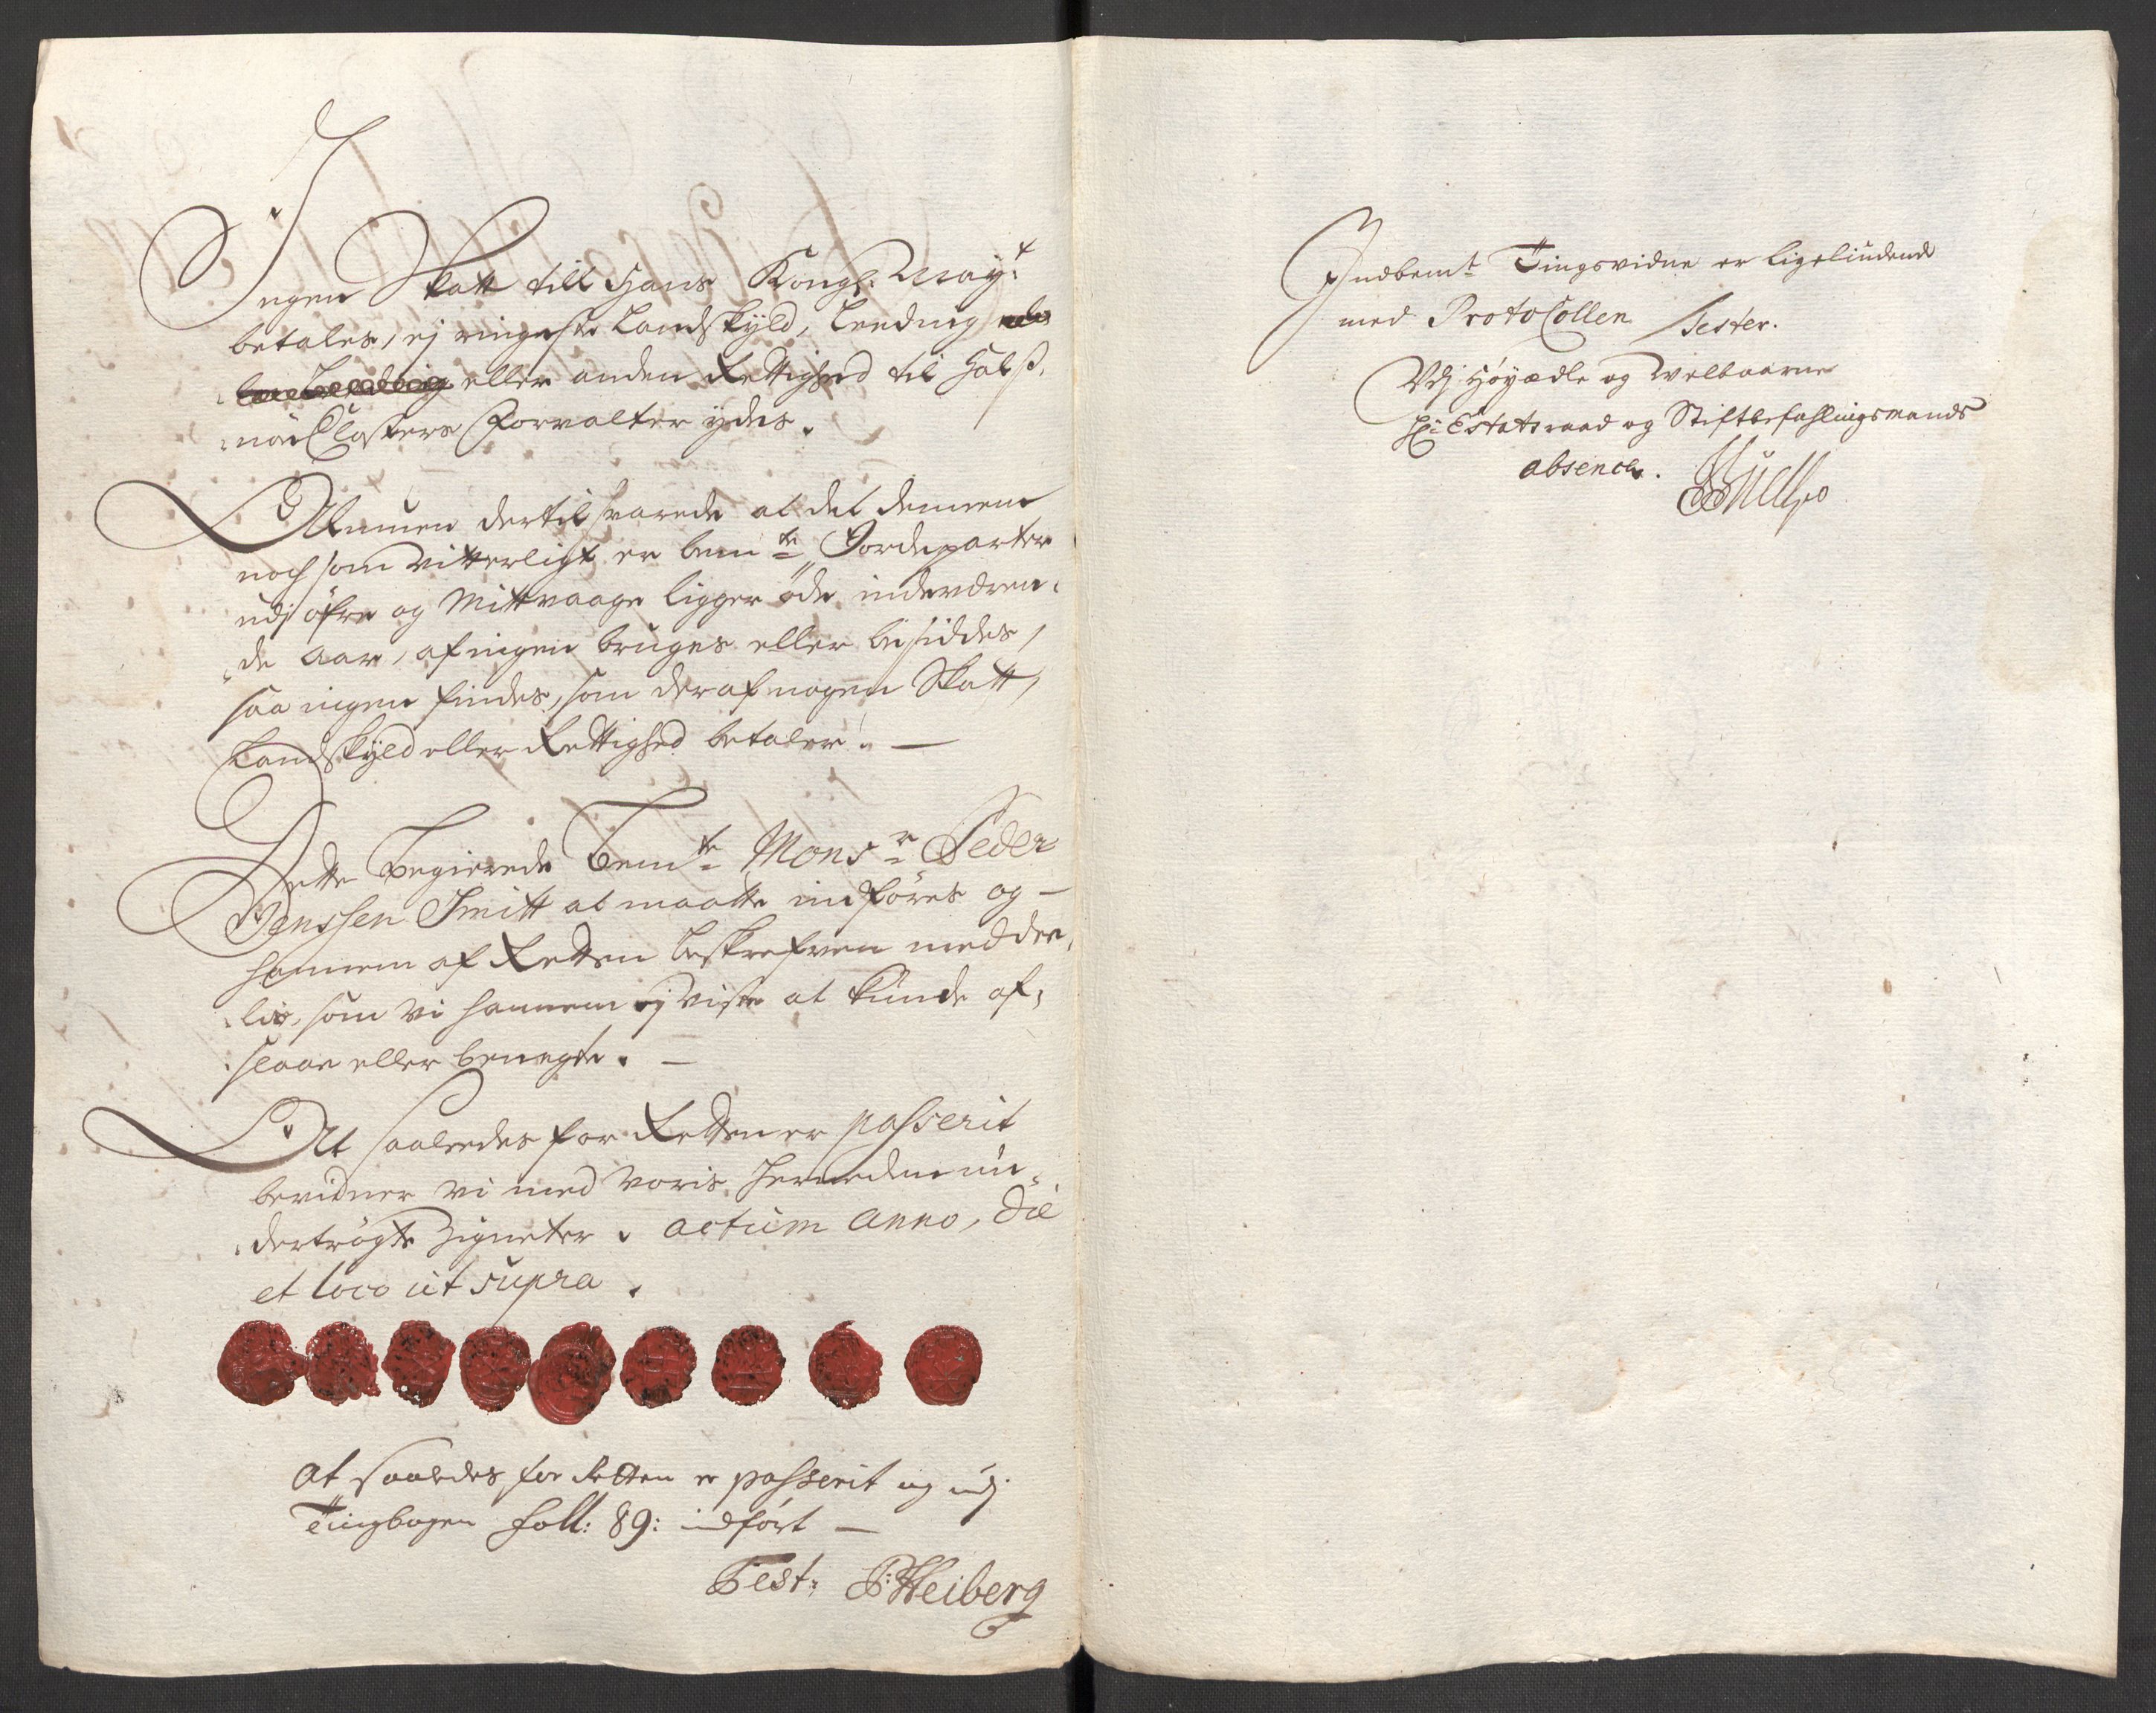 Ingen Skatt till Hans Kongl: May:t
betales, ej ringeste Landskyld, Leeding
eller anden Rettighed til Hals¬
nöe Closters Forvalter ydes.
Almuen dertil svarede at det dennem
noch som vitterligt er bem:te Jordeparter
udj öfre og Mittvaage ligger øde indeværen¬
de aar, af ingen bruges eller besiddes,
saa ingen findes, som deraf nogen Skatt,
Landskyld eller Rettighed betaler. —
Dette begierede bem:te Mons:r Peder
Jenssen Smitt at maatte indføres og —
hannem af Retten beskrefven meddee¬
lis, som vi hannem ej viste at kunde af¬
slaae eller benegte. —
At saaleedes for Retten er passerit
bevidner vi med voris herneden un¬
dertrögte Zigneter. Actum Anno, Die
et loco ut supra.
At saaledes for Retten er passerit og udj
Tingbogen foll: 89: indført —
Test: P: Heiberg
Indbem:t Tingsvidne er ligeliudende
med Protocollen Tester.
Vdj Høyædle og Velbaarne
Hr: Estatsraad og Stiftbefahlingsmands
absence.